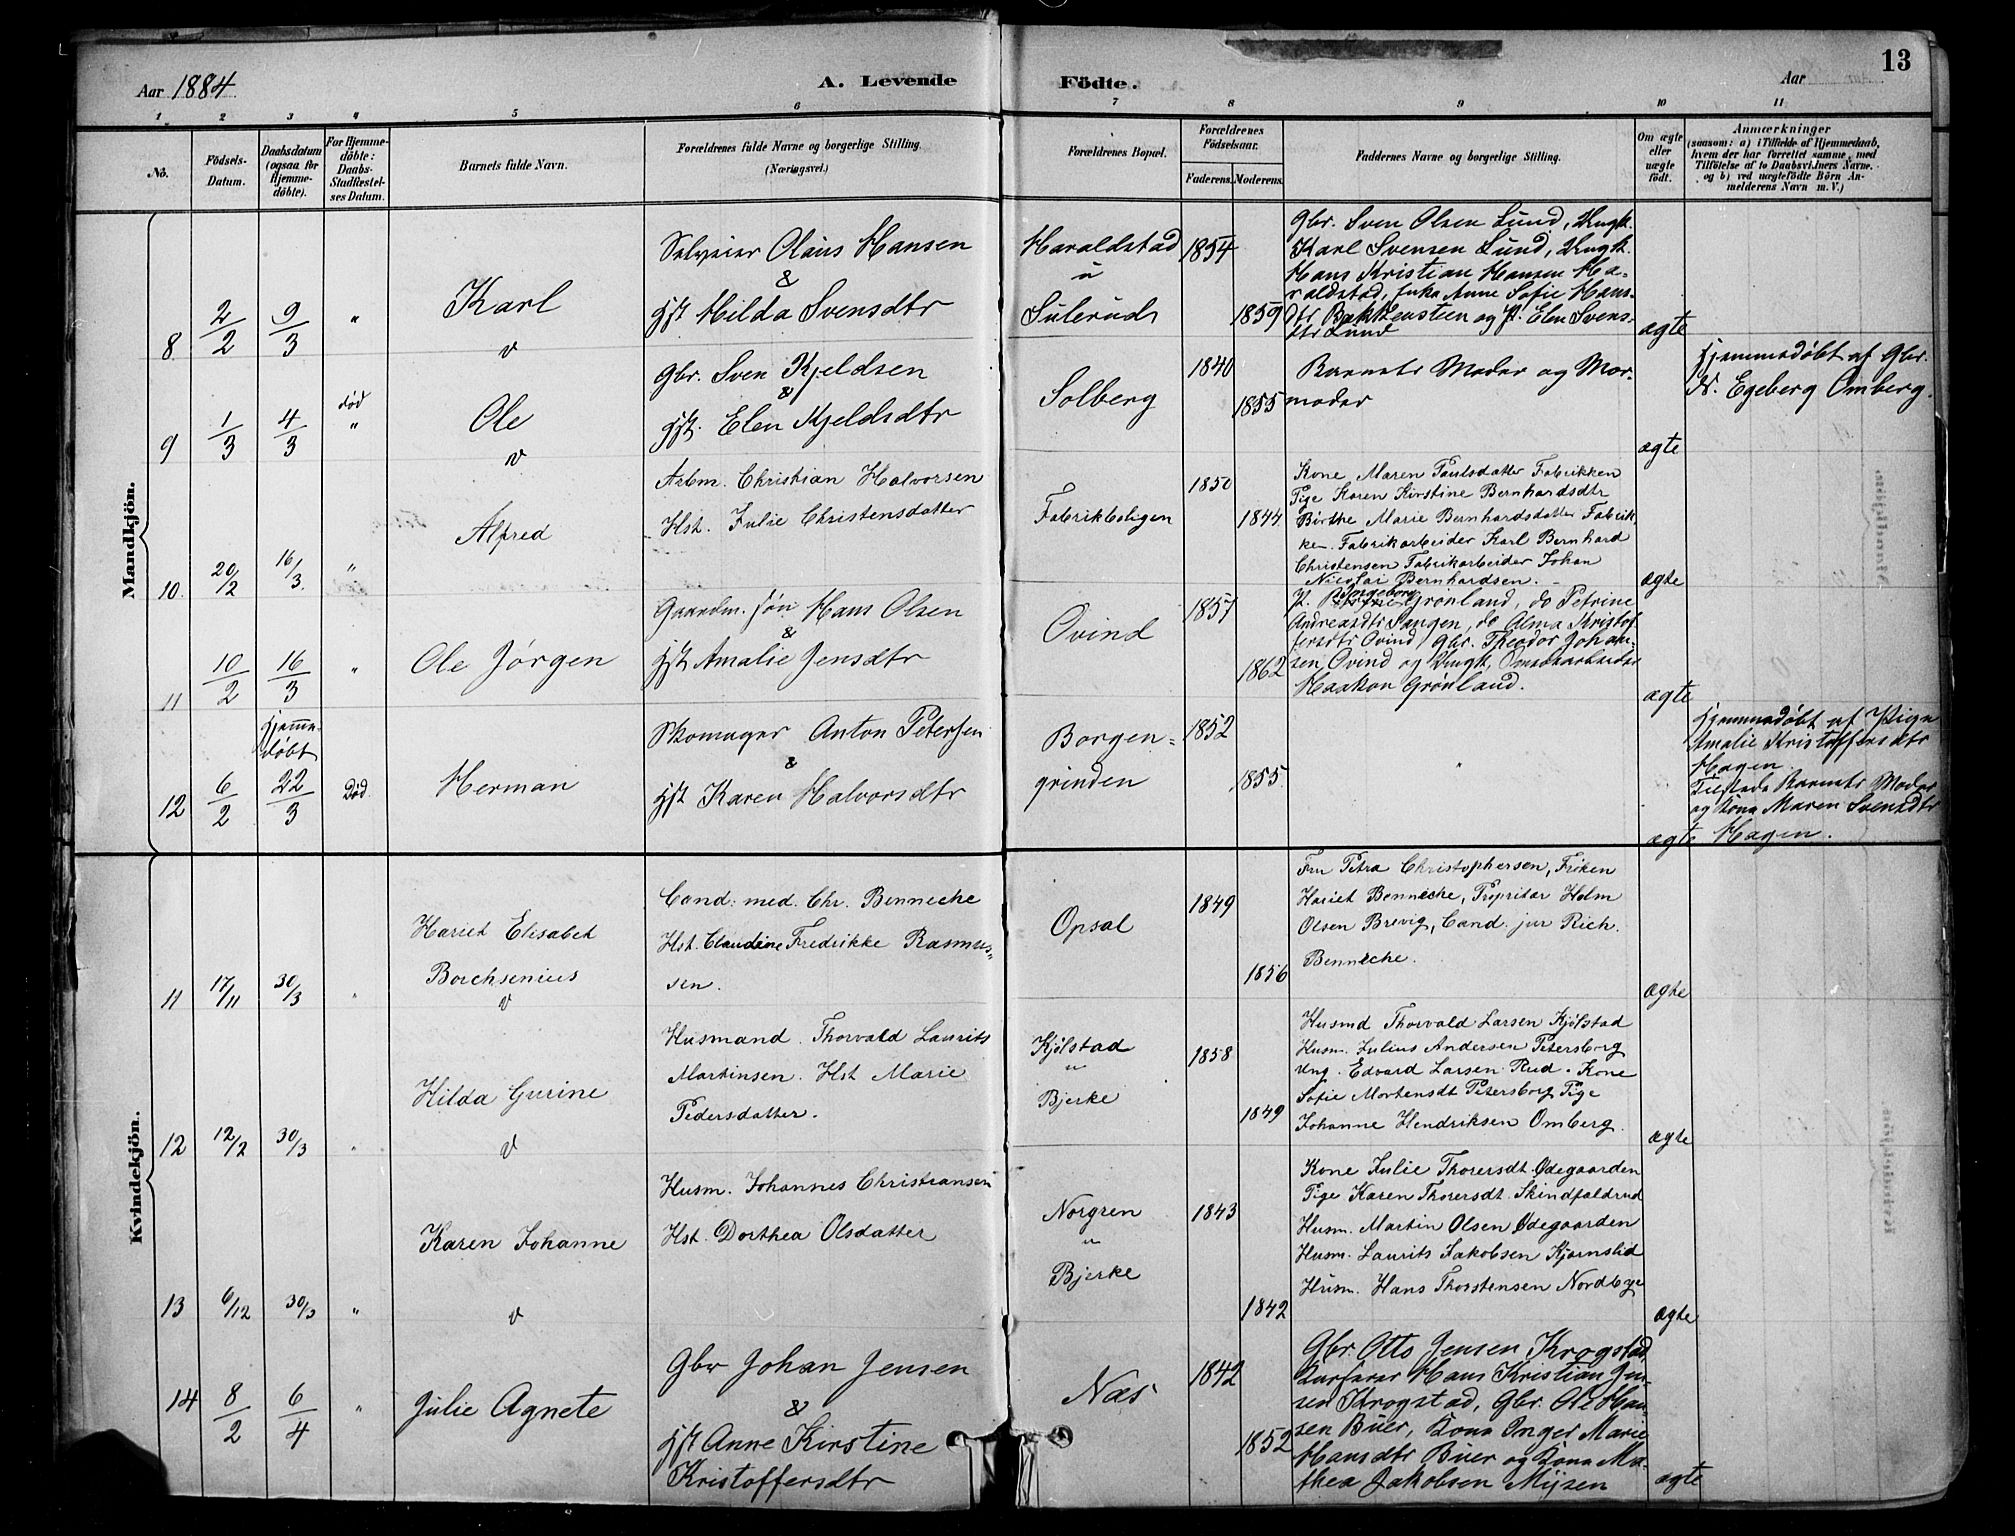 13
Aar 1884.
A. Levende
Födte.
Aar
1 2 3 4 5 6 7 8 9 10 11
No.
Födsels-
Datum.
Daabsdatum
(ogsaa for
Hjemme-
döbte).
For Hjemme-
döbte:
Daabs-
Stadfæstel-
ses Datum.
Barnets fulde Navn.
Forældrenes fulde Navne og borgerlige Stilling.
(Næringsvei.)
Forældrenes Bopæl.
Forældrenes
Födselsaar.
Faderens. Moderens.
Faddernes Navne og borgerlige Stilling.
Om ægte
eller
uægte
födt.
Anmærkninger
(saasom: a) i Tilfælde af Hjemmedaab,
hvem der har forrettet samme, med
Tilföielse af to Daabsvidners Navne.
og b) ved uægtefödte Börn An-
melderens Navn m.V.)
Mandkjön.
8
2/2
9/3
"
Karl
v
Selveier Olaus Hansen
&
Hst Hilda Svensdtr
Haraldstad
u
Sulerud
1854
1859
Gbr. Sven Olsen Lund, Ungk.
Karl Svensen Lund, Ungk.
Hans Kristian Hansen Ha-
raldstad, Enke Anne Sofie Hans-
dtr Bakkensteen og P. Elen Svens-
dtr Lund
ægte
9
1/3
4/3
død
"
Ole
v
Gbr. Sven Kjeldsen
&
Hst. Elen Kjeldsdtr
Solberg
1840
1855
Barnets Moder og Mor-
moder
ægte
Hjemmedøbt af Gbr.
N. Egeberg Omberg.
10.
20/2
16/3.
"
Alfred
Arbm. Christian Halvorsen
Hst. Julie Christensdatter
Fabrikboligen
1850
1844
Kone Maren Paulsdatter Fabrikken
Pige Karen Kirstine Bernhardsdtr
Birthe Marie Bernhardsdatter Fabrik-
ken. Fabrikarbeider Karl Bernhard
Christensen Fabrikarbeider Johan
Nicolai Bernhardsen.
ægte
11
10/2
16/3
"
Ole Jørgen
Gaardm. søn Hans Olsen
&
Hst Amalie Jensdtr
Ovind
1857
1862
P. Ingeborg Grønland, do Petrine
Andreasdtr Sangen, do Alma Kristof
fersdtr Ovind, Gbr. Theodor Johan-
sen Ovind og Ungk.
Haakon Grønland.
ægte
12
6/2
Hjemme-
døbt
22/3
Død.
Herman
Skomager Anton Petersen
&
Hst Karen Halvorsdtr
Borgen-
grinden
1852
1855.
"
ægte
Hjemmedøbt af Pige
Amalie Kristoffersdtr
Hagen.
Tilstede Barnets Moder
og Kona Maren Svensdtr
Hagen.
Kvindekjön.
11
17/11
30/3
"
Hariet Elisabet
Borchsenius
v
Cand: med. Chr. Bennecke
Hst. Claudine Fredrikke Rasmus-
sen.
Opsal
1849
1856
Fru Petra Christophersen, Frøken
Hariet Bennecke, Propritær Holm
Olsen Brevig, Cand. jur Rich.
Bennecke.
ægte
12
12/2
30/3
"
Hilda Gurine
v
Husmand Thorvald Laurits
Martinsen. Hst Marie
Pedersdatter.
Kjølstad
u
Bjerke
1858
1849
Husmd Thorvald Larsen Kjølstad
Husm. Julius Andersen Petersborg
Ung. Edvard Larsen Rud. Kone
Sofie Mortensdt Petersborg Pige
Johanne Hendriksen Omberg.
ægte
13
6/12
30/3
"
Karen Johanne
v
Husm. Johannes Christiansen
Hst. Dorthea Olsdatter
Norgren
u
Bjerke
1843
1842
Kone Julie Thorersdt. Ødegaarden
Pige Karen Thorersdt. Skindfaldrud
Husm. Martin Olsen Ødegaarden
Husm. Laurits Jakobsen Kjørnslid
Husm. Hans Thorstensen Nordbye
ægte
14
8/2
6/4
"
Julie Agnete
Gbr Johan Jensen
&
Hst Anne Kirstine
Kristoffersdtr
Næs
1842
1852
Gbr. Otto Jensen Krogstad,
Hans Kristian Jen-
sen Krogstad, Gbr. Ole Han-
sen Buer, Kona Inger Marie
Hansdtr Buer og Kona Ma-
thea Jakobsen Mysen
ægte